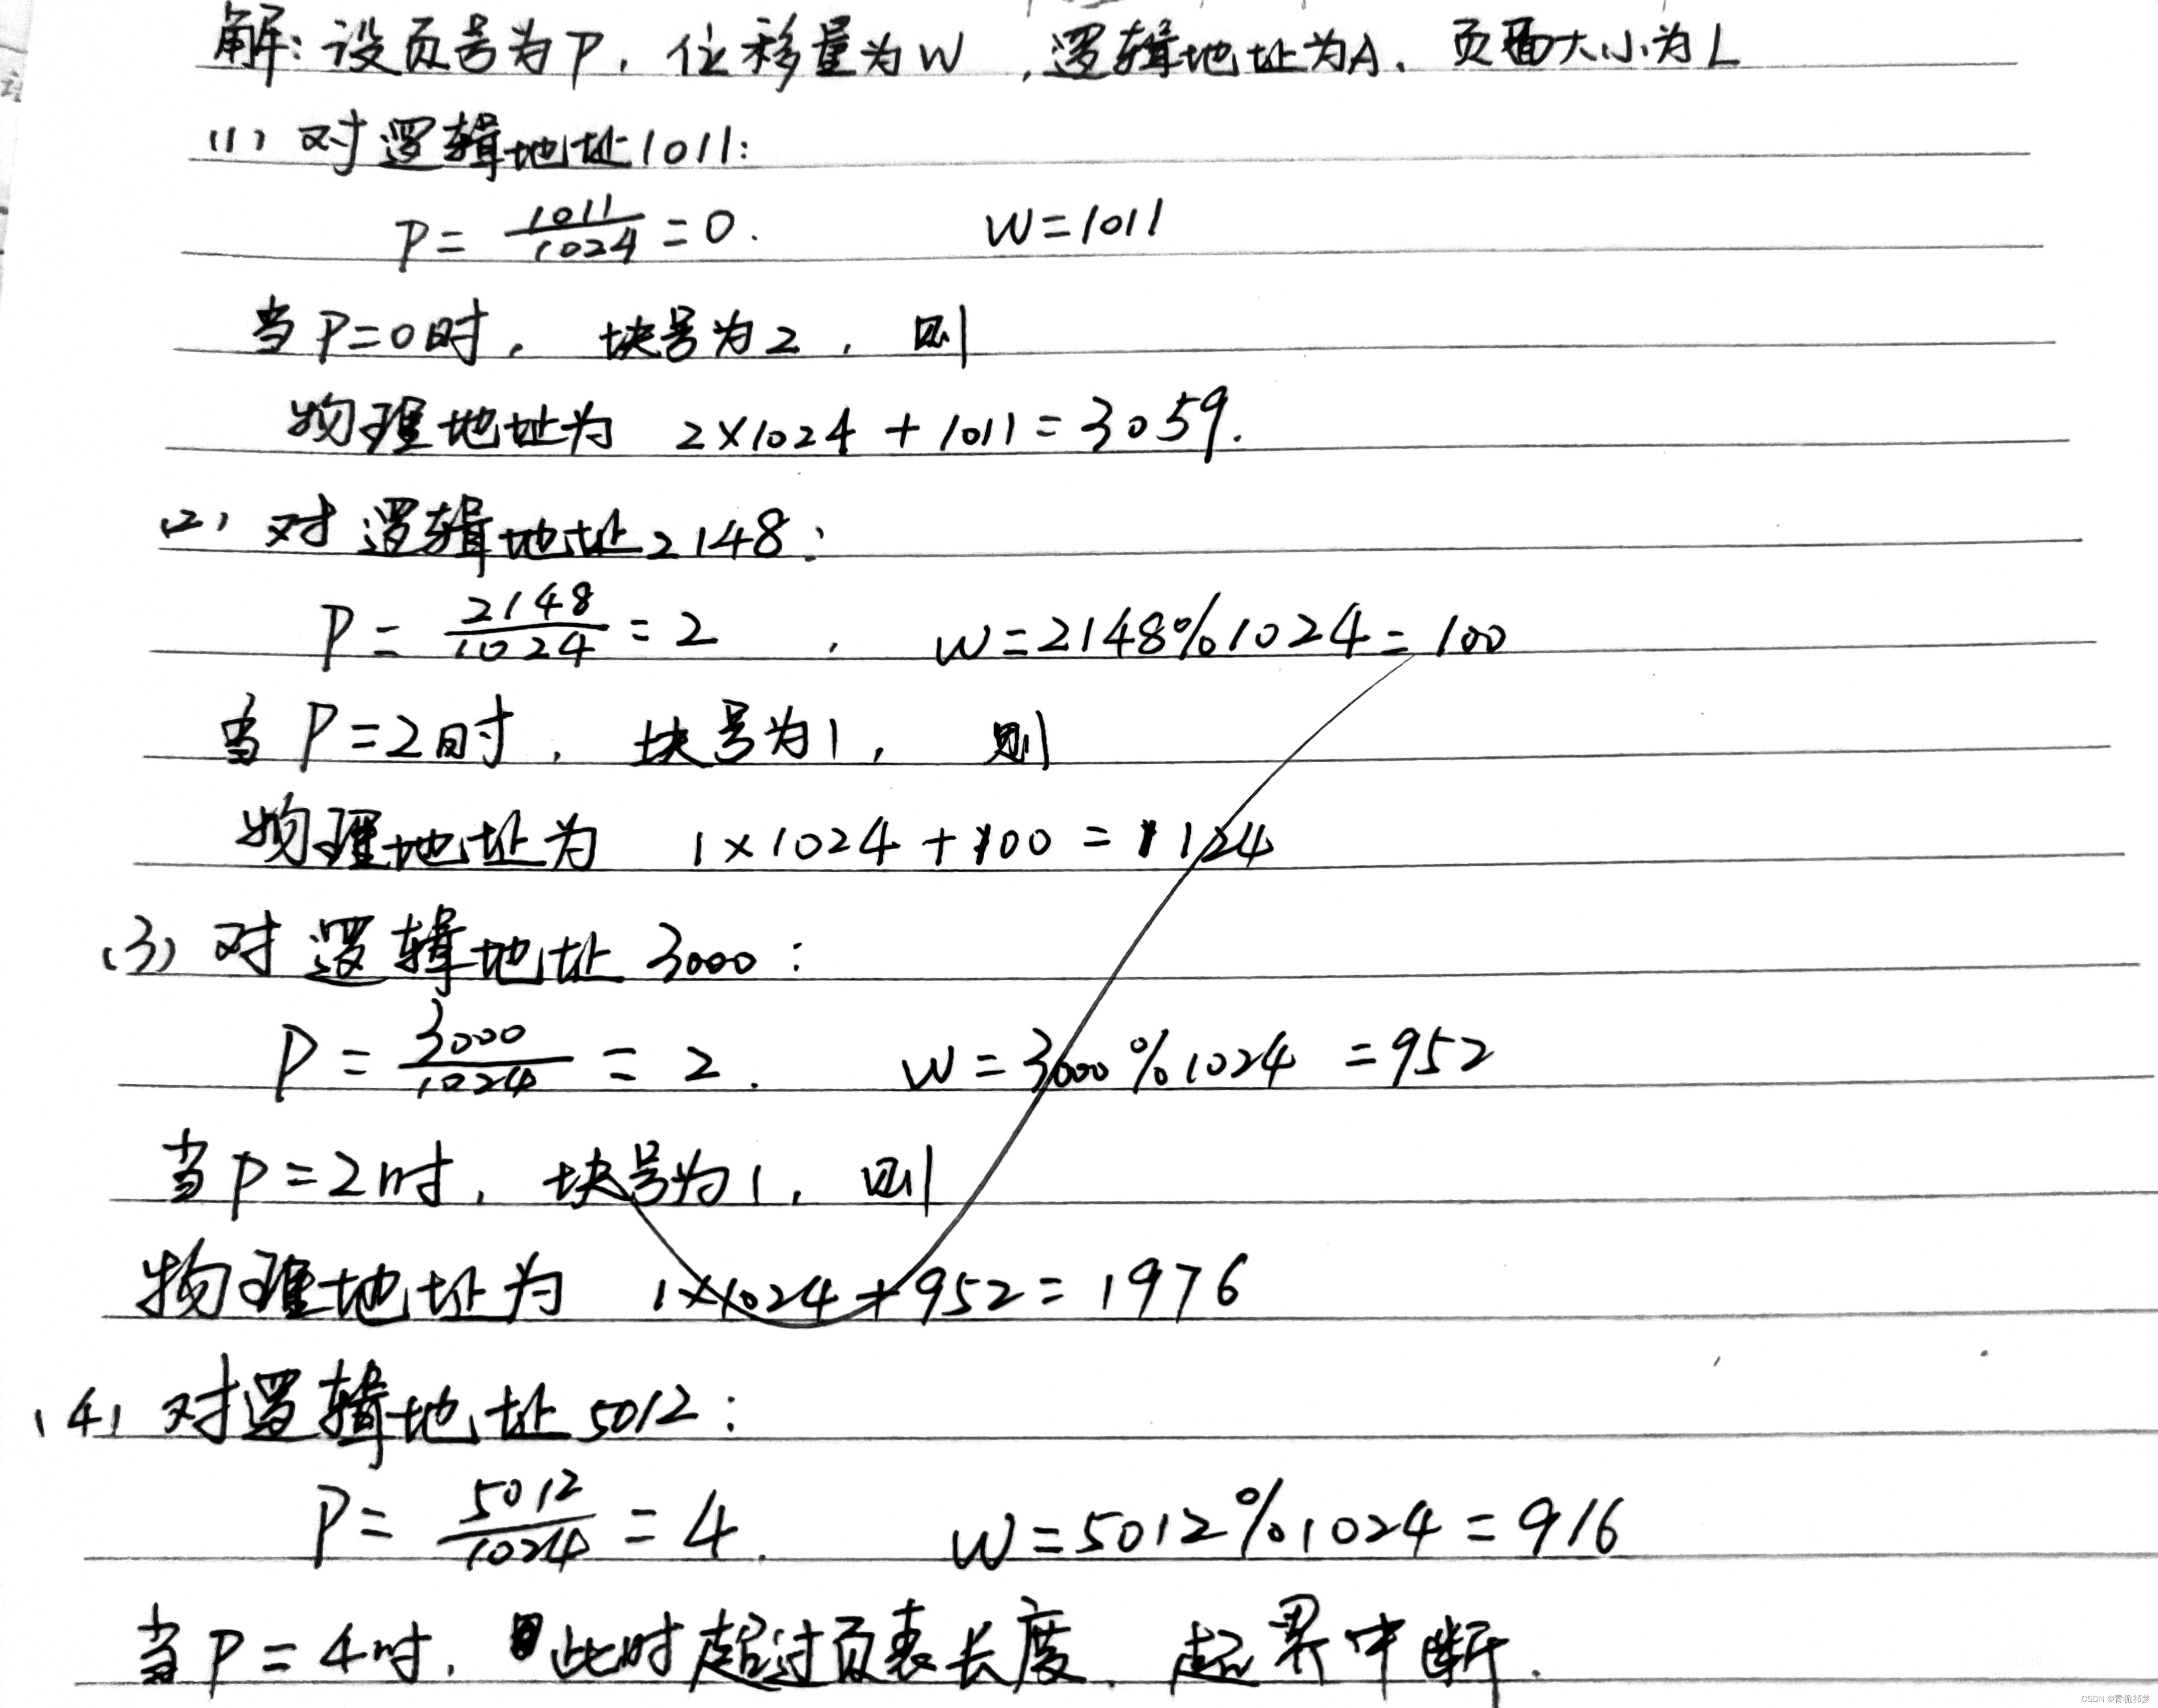 解：设页号为P，位移量为W，逻辑地址为A、页面大小为L
(1) 对逻辑地址1011：
P = 1011/1024 = 0.  W=1011
当P=0时，块号为2，则
物理地址为 2×1024+1011=3059.
(2) 对逻辑地址2148：
P = 2148/1024 = 2，W=2148%1024=100
当P=2时，块号为1，则
物理地址为 1×1024+100=1124
(3) 对逻辑地址3000：
P = 3000/1024 = 2.  W=3000%1024=952
当P=2时，块号为1，则
物理地址为 1×1024+952=1976
(4) 对逻辑地址5012：
P = 5012/1024 = 4.  W=5012%1024=916
当P=4时，此时超过页表长度，越界中断.
CSDN @青栀祁梦